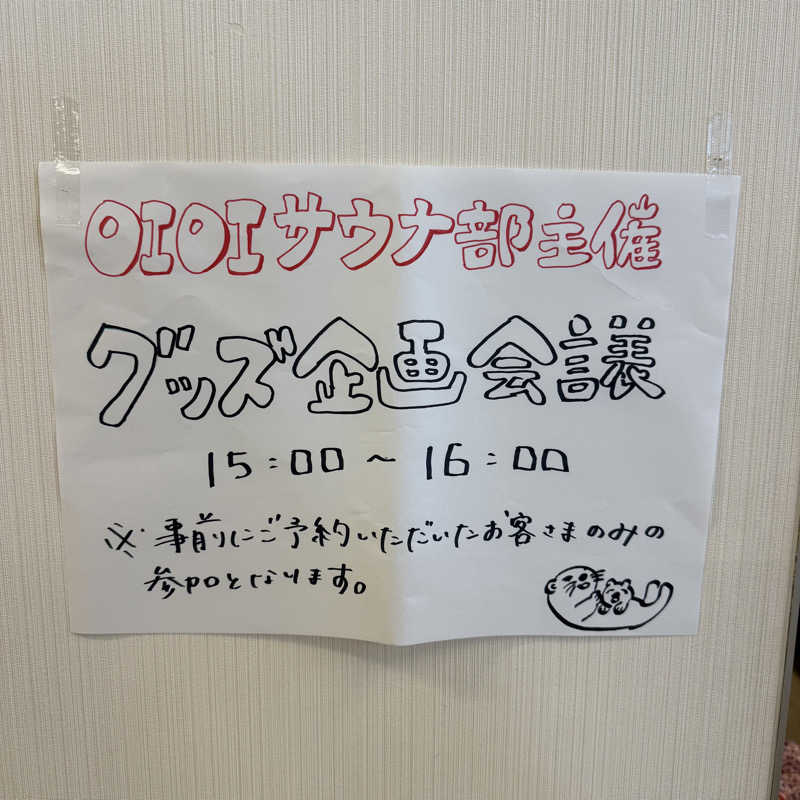 OIOIサウナ部主催
グッズ企画会議
15:00～16:00
※事前にご予約いただいたお客さまのみの
参加となります。